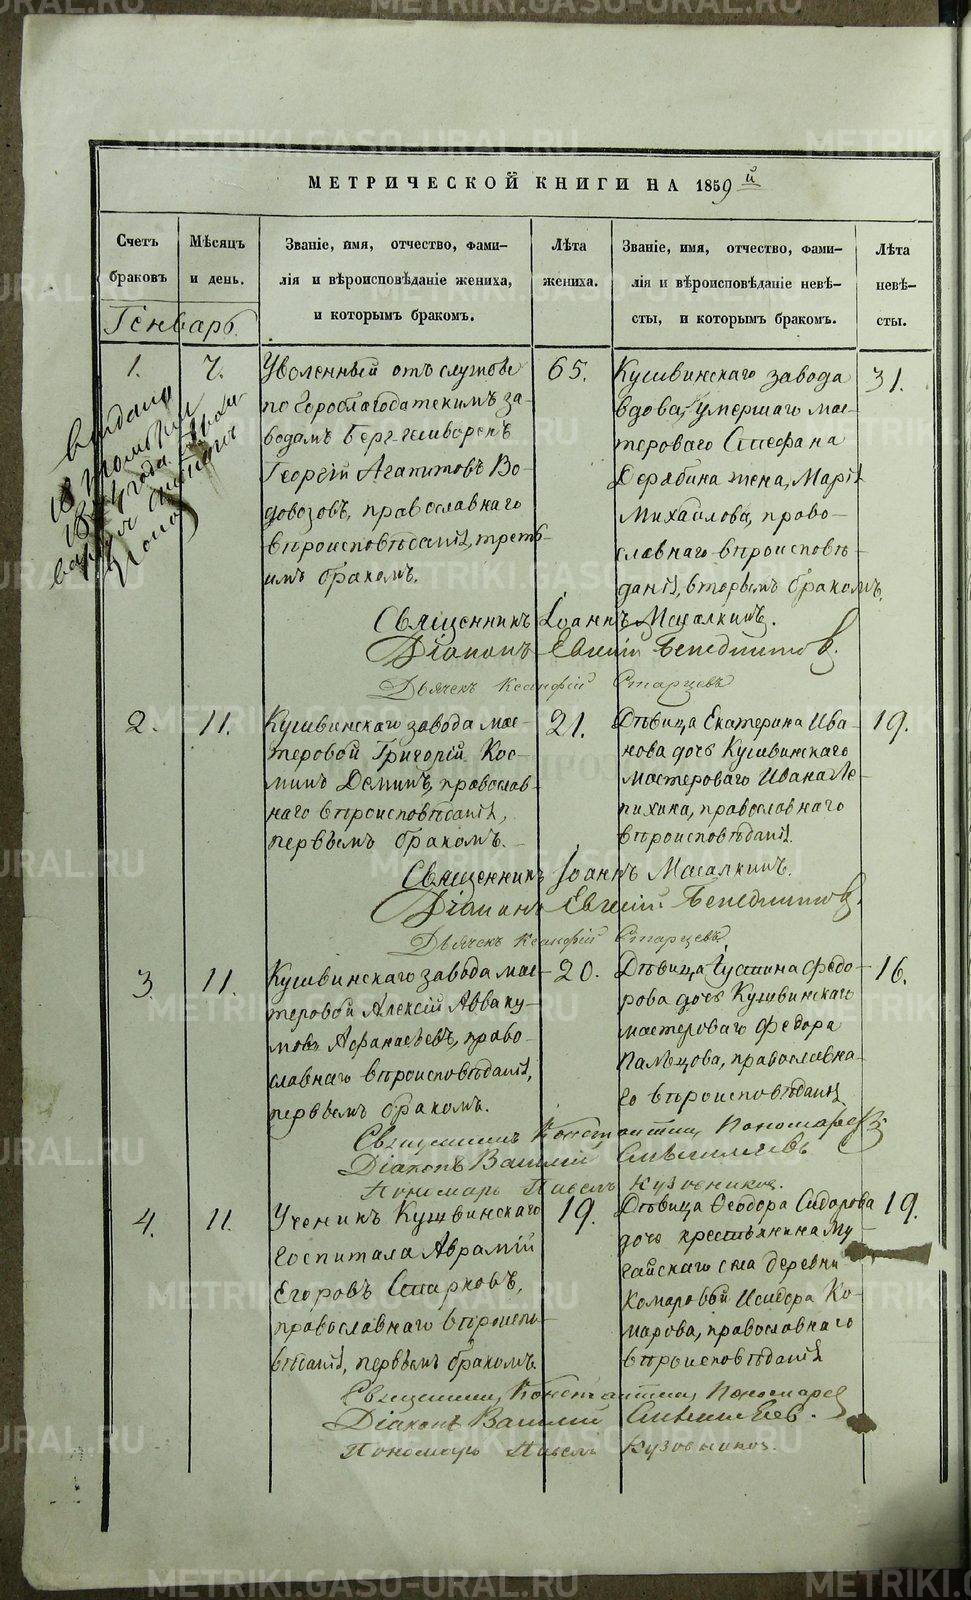 МЕТРИЧЕСКОЙ КНИГИ НА 1859й
Счетъ
браковъ
Мѣсяцъ
и день.
Званіе, имя, отчество, фами-
лія и вѣроисповѣданіе жениха,
и которымъ бракомъ.
Лѣта
жениха.
Званіе, имя, отчество, фами-
лія и вѣроисповѣданіе невѣ-
сты, и которымъ бракомъ.
Лѣта
невѣ-
сты.
Генварь.
1.
7.
Уволенный отъ службы
по Гороблагодатскимъ за-
водамъ Берггешворенъ
Георгій Агапитовъ Во-
довозовъ, православнаго
вѣроисповѣданія, треть-
имъ бракомъ.
65.
Кушвинскаго завода
вдова, умершаго мас-
тероваго Стефана
Дерябина жена, Марія
Михайлова, право-
славнаго вѣроисповѣ-
данія, вторымъ бракомъ.
31.
Выдано
18
года
Священникъ Іоаннъ Масалкинъ.
Діаконъ Евгеній Бенедиктовъ.
Дьячекъ Ксанфій Старцевъ
2.
11.
Кушвинскаго завода мас-
теровой Григорій Кос-
минъ Деминъ, православ-
наго вѣроисповѣданія,
первымъ бракомъ.
21.
Дѣвица Екатерина Ива-
нова дочь Кушвинскаго
мастероваго Ивана Ле-
пихина, православнаго
вѣроисповѣданія.
19.
Священникъ Іоаннъ Масалкинъ.
Діаконъ Евгеній Бенедиктовъ.
Дьячекъ Ксанфій Старцевъ
3.
11.
Кушвинскаго завода мас-
теровой Алексій Авваку-
мовъ Афанасьевъ, право-
славнаго вѣроисповѣданія,
первымъ бракомъ.
20.
Дѣвица Іустина Федо-
рова дочь Кушвинскаго
мастероваго Федора
Пальцова, православна-
го вѣроисповѣданія
16.
Священникъ Константинъ Пономаревъ
Діаконъ Василій
Пономарь Павелъ Кузовниковъ.
4.
11.
Ученикъ Кушвинскаго
госпиталя Аврамій
Егоровъ Старковъ,
православнаго вѣроиспо-
вѣданія, первымъ бракомъ.
19.
Дѣвица Ѳеодора Сидорова
дочь крестьянина Му-
гайскаго села деревни
Комаровой Исидора Ко-
марова, православнаго
вѣроисповѣданія
19.
Священникъ Константинъ Пономаревъ
Діаконъ Василій
Пономарь Павелъ Кузовниковъ.
METRIKI.GASO-URAL.RU